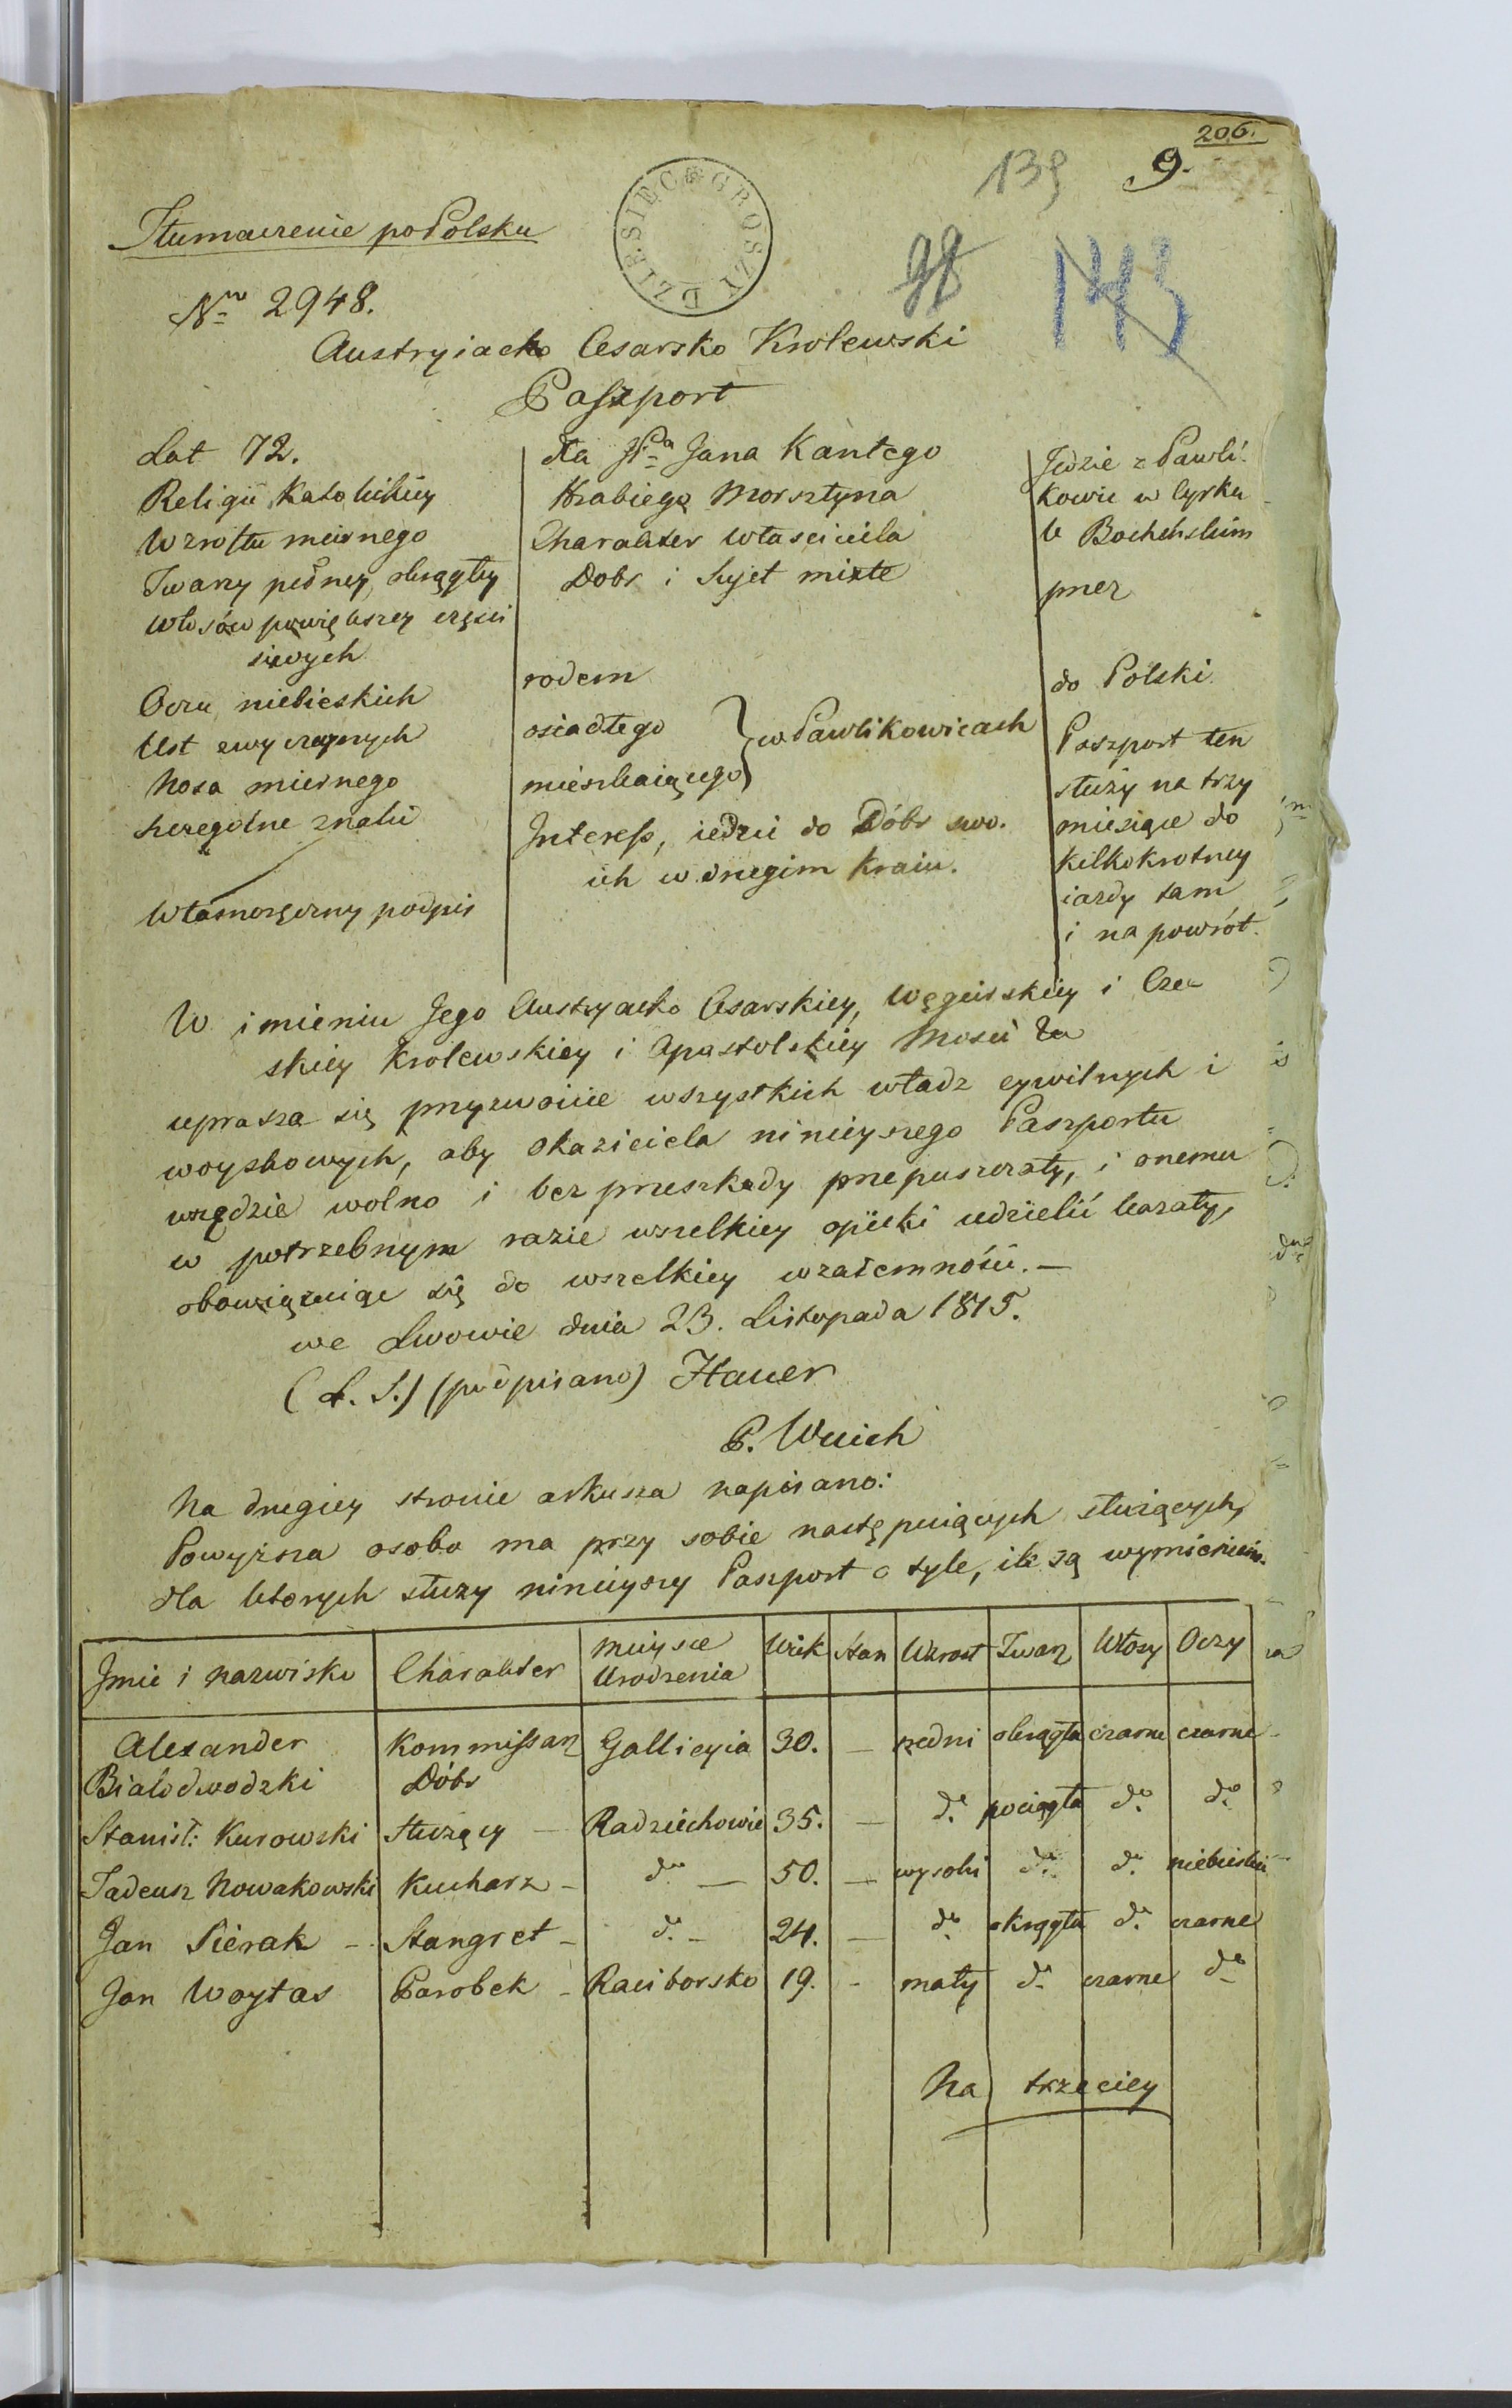 206.
139 9.
98 143
DZIESIĘC GROSZY
Tłumaczenie po Polsku
Nro 2948.
Austryiacko Cesarsko Krolewski
Paszport
Lat 72.
Religii Katolickiey
Wzrostu miernego
Twarzy pełney, okrągłey
Włosów powiększey części
siwych
Oczu niebieskich
Ust zwyczaynych
Nosa miernego
Szczególne znaki
Własnoręczny podpis
dla JPa Jana Kantego
Hrabiego Morsztyna
Charakter właściciela
Dobr i Sujet mixte
rodem
osiadłego } w Pawlikowicach
mieszkaiącego
Interess, iedzie do Dóbr swo-
ich w drugim Kraiu.
Jedzie z Pawli-
kowic w Cyrku-
le Bocheńskim
przez
do Polski
Paszport ten
służy na trzy
miesiące do
kilkokrotney
iazdy tam
i na powrót.
W imieniu Jego Austryacko Cesarskiey, Węgierskiey i Cze-
skiey Krolewskiey i Apostolskiey Mości
uprasza się przyzwoicie wszystkich władz cywilnych i
woyskowych, aby okaziciela ninieyszego Paszportu
wszędzie wolno i bez przeszkody przepuszczały, i onemu
w potrzebnym razie wszelkiey opieki udzielić kazały,
obowiązuiąc się do wszelkiey wzaiemności. —
we Lwowie dnia 23. Listopada 1815.
(L. S.) (podpisano) Hauer
P. Wuich
Na drugiey stronie arkusza napisano:
Powyższa osoba ma przy sobie następuiących służących,
dla ktorych służy ninieyszy Paszport o tyle, ile są wymienieni.
Jmie i nazwisko Charakter mieysce Urodzenia Wiek Stan Wzrost Twarz Włosy Oczy
Alexander Białodwodzki Kommissarz Dóbr Gallicyia 30. — średni okrągła czarne czarne
Stanisł: Kurowski Służący — Radziechowie 35. — do pociągła do do
Tadeusz Nowakowski Kucharz — do — 50. — wysoki do do niebieskie
Jan Sierak — Stangret — do — 24. — do okrągła do czarne
Jan Woytas Parobek — Raciborsko 19. — mały do czarne do
Na trzeciey